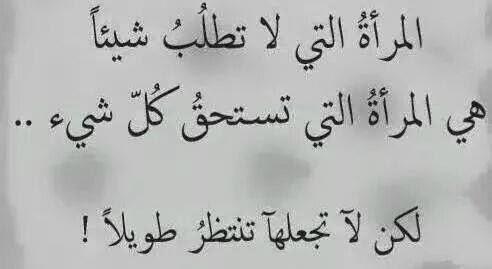 المرأةُ التي لا تطلُبُ شيئاً
هي المرأةُ التي تستحقُ كُلّ شيء ..
لكن لآ تجعلهآ تنتظرُ طويلاً !